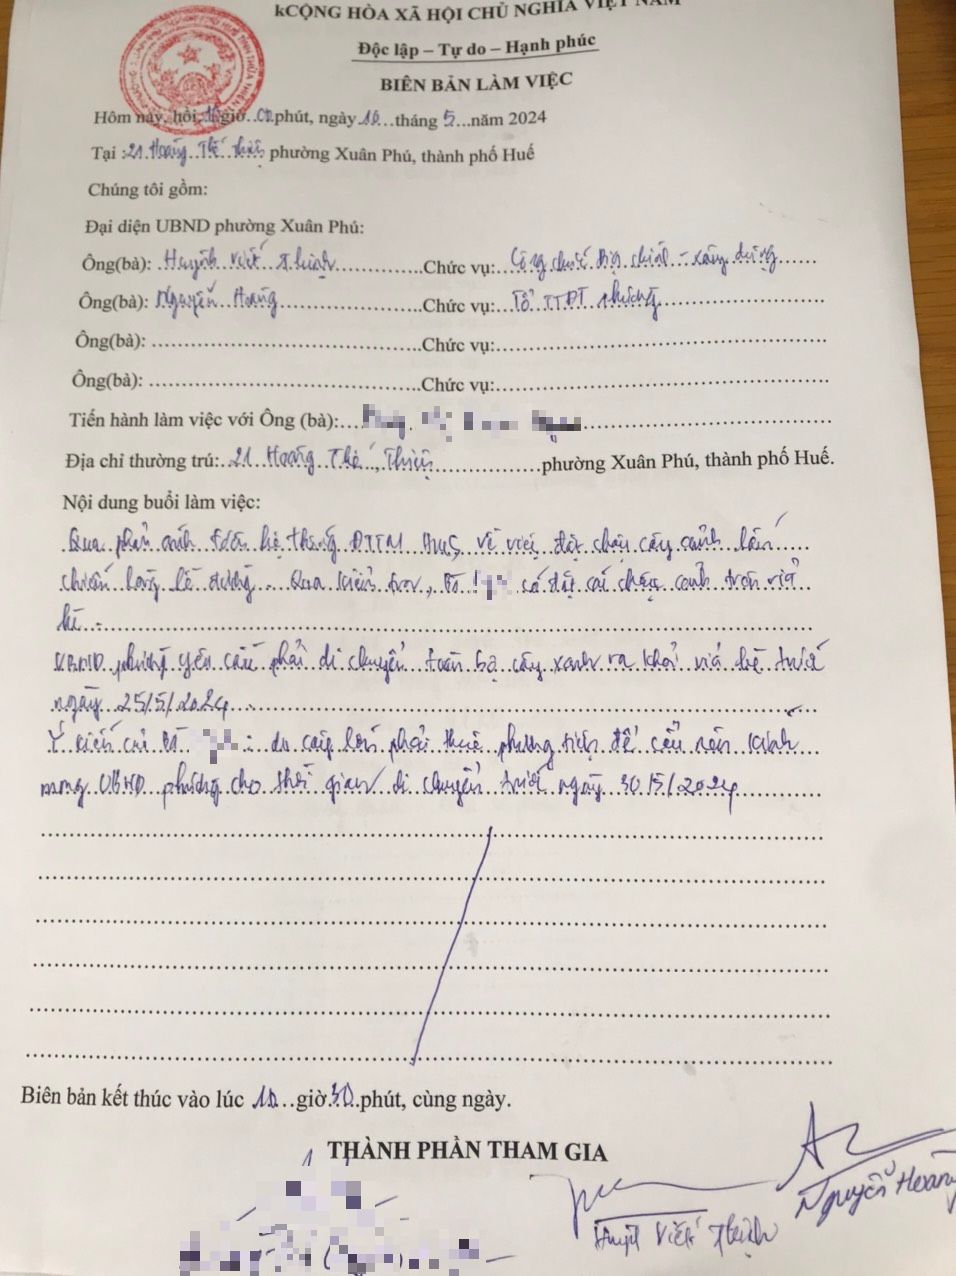 kCỘNG HÒA XÃ HỘI CHỦ NGHĨA VIỆT NAM
Độc lập – Tự do – Hạnh phúc
BIÊN BẢN LÀM VIỆC
Hôm nay, hồi giờ 00 phút, ngày 10 tháng 5 năm 2024
Tại : 21 Hoàng Thế Thiện phường Xuân Phú, thành phố Huế
Chúng tôi gồm:
Đại diện UBND phường Xuân Phú:
Ông(bà): Huỳnh Viết Thịnh Chức vụ: Công chức địa chính - xây dựng
Ông(bà): Nguyễn Hoàng Chức vụ: Tổ TTĐT phường
Ông(bà): Chức vụ:
Ông(bà): Chức vụ:
Tiến hành làm việc với Ông (bà):
Địa chỉ thường trú: 21 Hoàng Thế Thiện phường Xuân Phú, thành phố Huế.
Nội dung buổi làm việc:
Qua phản ánh trên hệ thống ĐTTM Huế, về việc đặt chậu cây cảnh lấn
chiếm lòng lề đường. Qua kiểm tra, Bà có đặt cái chậu cảnh trên vỉa
hè.
UBND phường yêu cầu phải di chuyển toàn bộ cây xanh ra khỏi vỉa hè trước
ngày 25/5/2024
Ý kiến của Bà : do cây lớn phải thuê phương tiện để cẩu nên kính
mong UBND phường cho thời gian di chuyển trước ngày 30/5/2024
Biên bản kết thúc vào lúc 10 giờ 30 phút, cùng ngày.
THÀNH PHẦN THAM GIA
Huỳnh Viết Thịnh
Nguyễn Hoàng